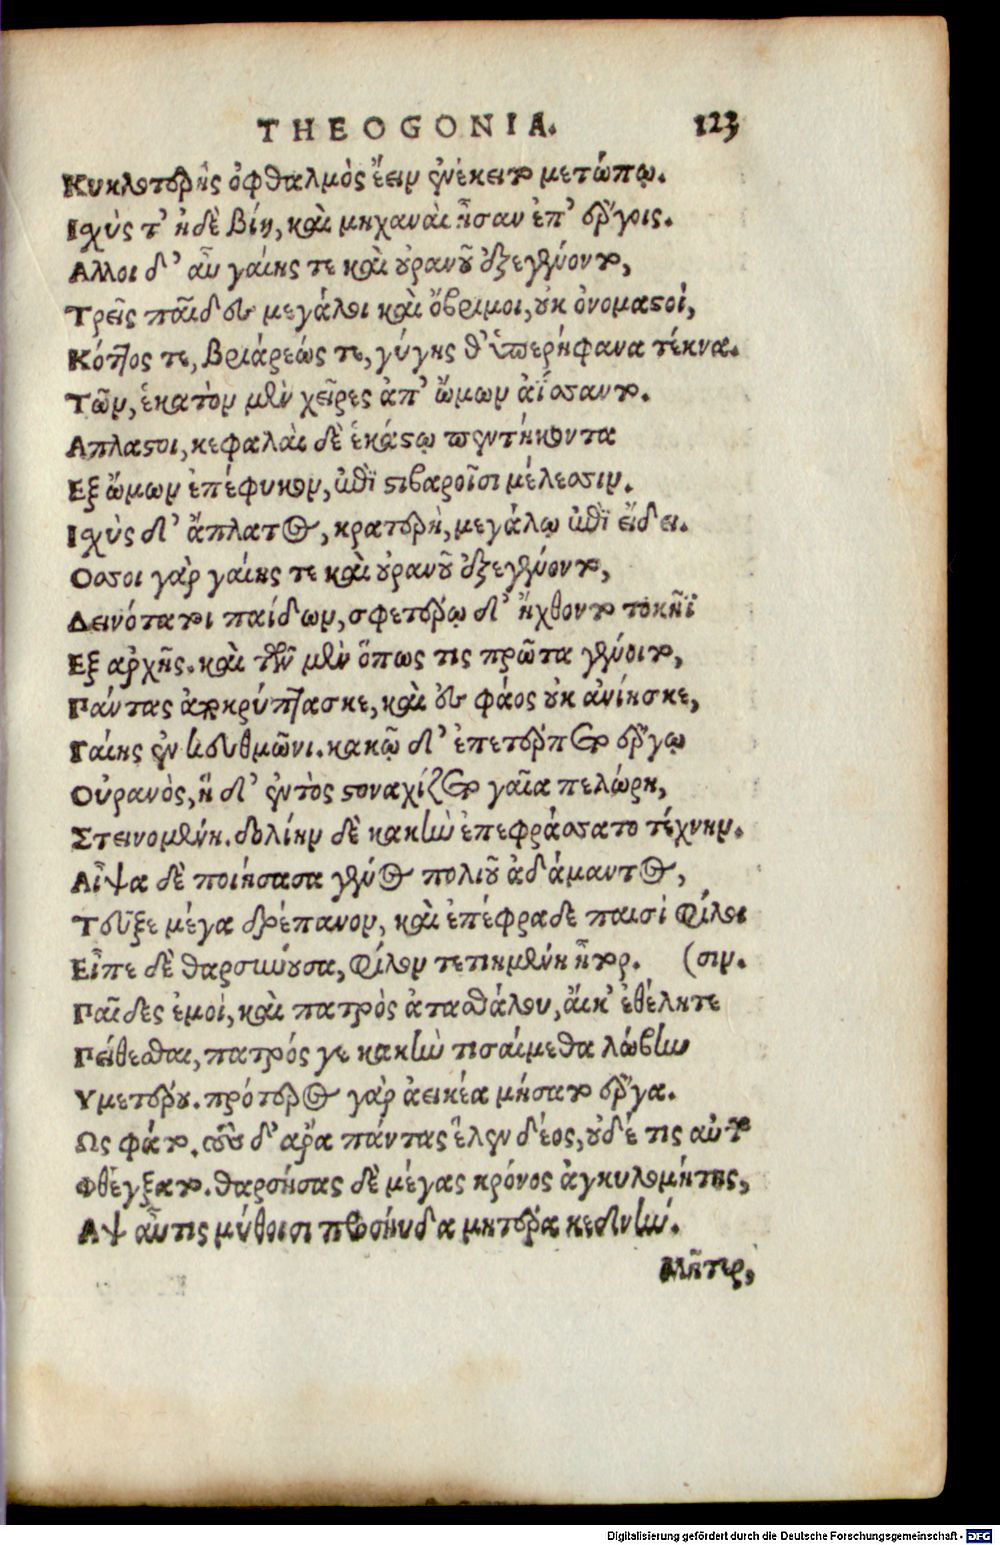 THEOGONIA. 123
Κυκλοτερὴς ὀφθαλμὸς ἕεις ἐνέκειτο μετώπῳ.
Ιχύς τ' ἠδὲ βίη, καὶ μηχαναὶ ἦσαν ἐπ' ἔργοις.
Αλλοι δ' αὖ γαίης τε καὶ οὐρανοῦ ἐξεγένοντο,
Τρεῖς παῖδες μεγάλοι καὶ ὄβριμοι, οὐκ ὀνομαστοί,
Κόττος τε, βριάρεώς τε, γύγης θ' ὑπερήφανα τέκνα.
Τῶν, ἑκατὸν μὲν χεῖρες ἀπ' ὤμων ἀΐσσαντο.
Απλαστοι, κεφαλαὶ δὲ ἑκάστῳ πεντήκοντα
Εξ ὤμων ἐπέφυκον, ἐπὶ στιβαροῖσι μέλεσσιν.
Ιχὺς δ' ἄπλατος, κρατερὴ, μεγάλῳ ἐπὶ εἴδει.
Οσσοι γὰρ γαίης τε καὶ οὐρανοῦ ἐξεγένοντο,
Δεινότατοι παίδων, σφετέρῳ δ' ἤχθοντο τοκῆϊ
Εξ ἀρχῆς. καὶ τῶν μὲν ὅπως τις πρῶτα γένοιτο,
Πάντας ἀποκρύπτασκε, καὶ ἐς φάος οὐκ ἀνίησκε,
Γαίης ἐν κευθμῶνι. κακῷ δ' ἐπετέρπετο ἔργῳ
Οὐρανὸς, ἣ δ' ἐντὸς στοναχίζετο γαῖα πελώρη,
Στεινομένη. δολίην δὲ κακὴν ἐπεφράσσατο τέχνην.
Αἶψα δὲ ποιήσασα γένος πολιοῦ ἀδάμαντος,
Τεῦξε μέγα δρέπανον, καὶ ἐπέφραδε παισὶ φίλοι
Εἶπε δὲ θαρσύνουσα, φίλον τετιημένη ἦτορ. (σιν.
Παῖδες ἐμοί, καὶ πατρὸς ἀτασθάλου, αἴ κ' ἐθέλητε
Πείθεσθαι, πατρός γε κακὴν τισαίμεθα λώβην
Υμετέρου. πρότερος γὰρ ἀεικέα μήσατο ἔργα.
Ως φάτο. τοὺς δ' ἄρα πάντας ἕλεν δέος, οὐδέ τις αὐτῶν
Φθέγξατο. θαρσήσας δὲ μέγας κρόνος ἀγκυλομήτης,
Αψ αὖτις μύθοισι προσηύδα μητέρα κεδνήν.
Μῆτερ,
Digitalisierung gefördert durch die Deutsche Forschungsgemeinschaft - DFG